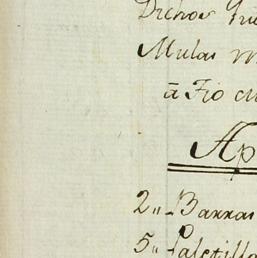 Dichos
Mulas
á Fio
Ap
2,, Barras
5,, Paletilla